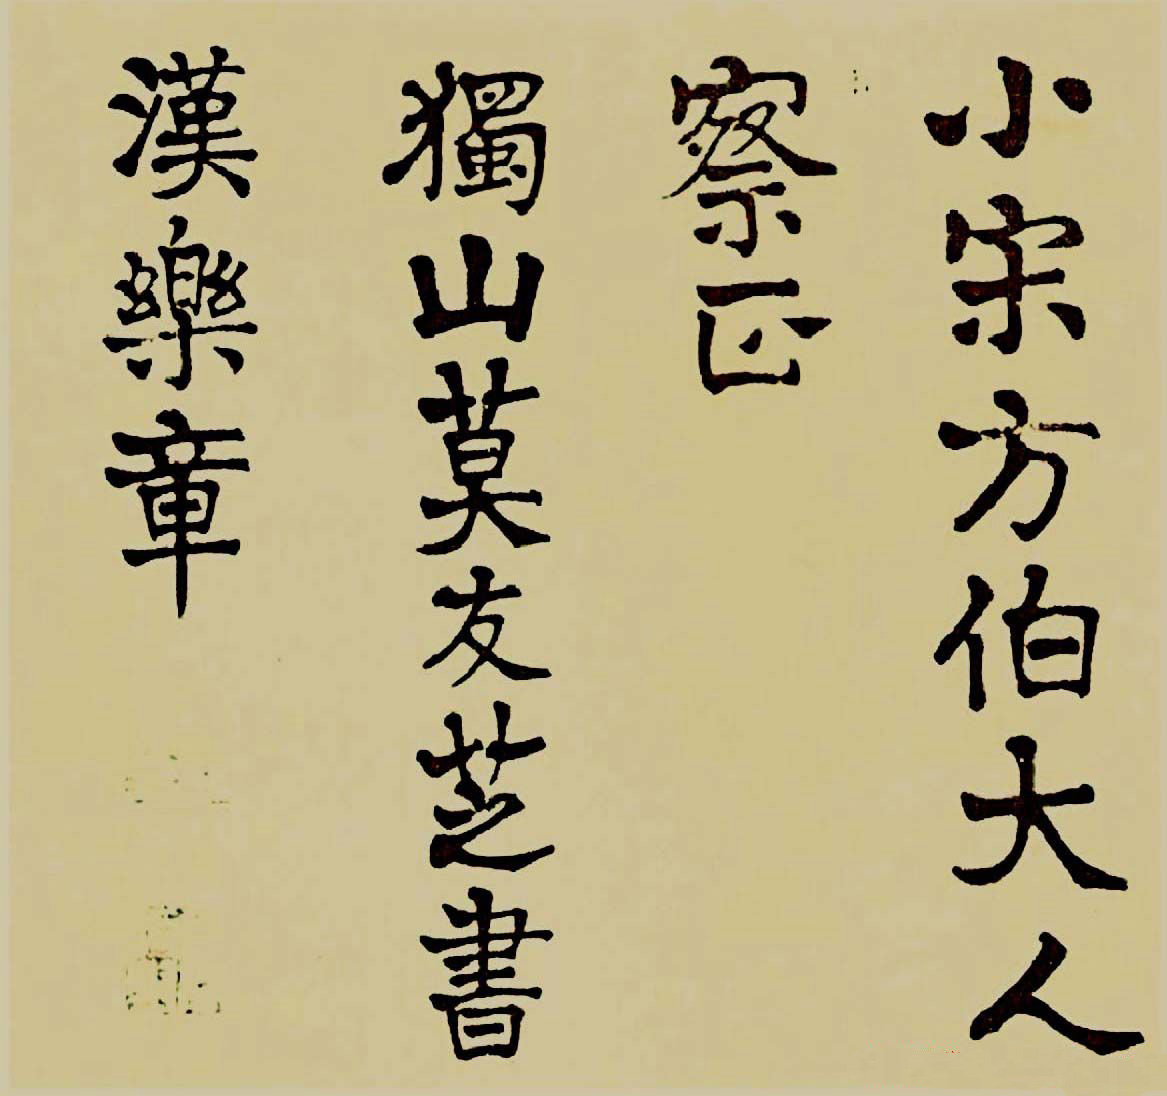 小宋方伯大人
察正
獨山莫友芝書
漢樂章